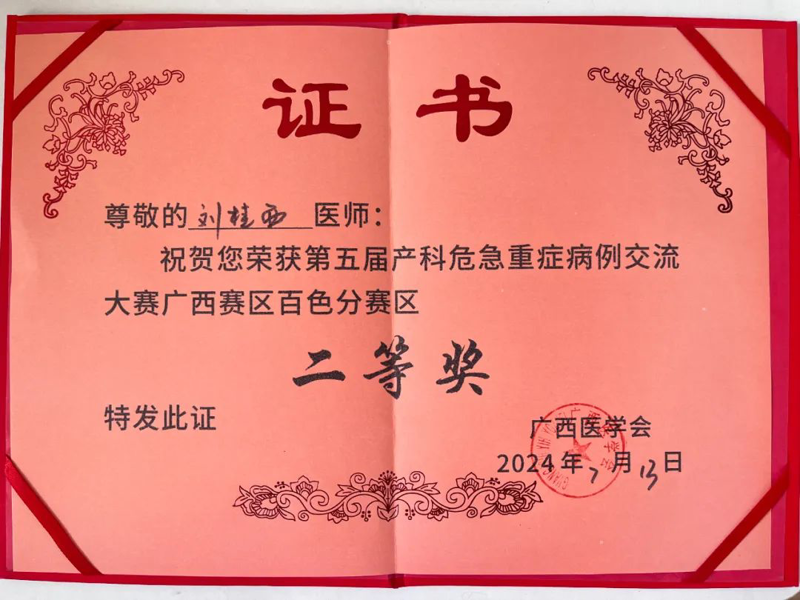 证书
尊敬的刘桂西医师：
祝贺您荣获第五届产科危急重症病例交流
大赛广西赛区百色分赛区
二等奖
特发此证
广西医学会
2024年7月13日